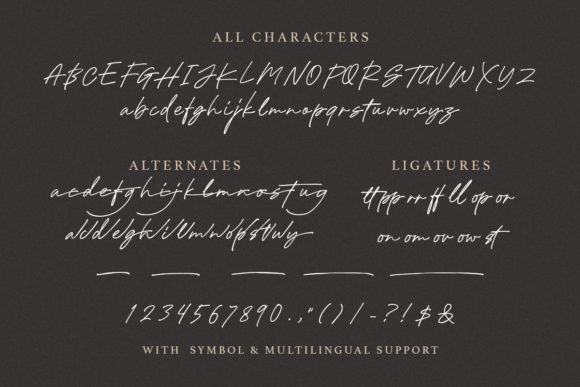 ALL CHARACTERS
ABCDEFGHIJKLMNOPQRSTUVWXYZ
abcdefghijklmnopqrstuvwxyz
ALTERNATES
LIGATURES
tt pp rr ff ll op or
on om ov ow st
1234567890.,"()/-?!$&
WITH SYMBOL & MULTILINGUAL SUPPORT